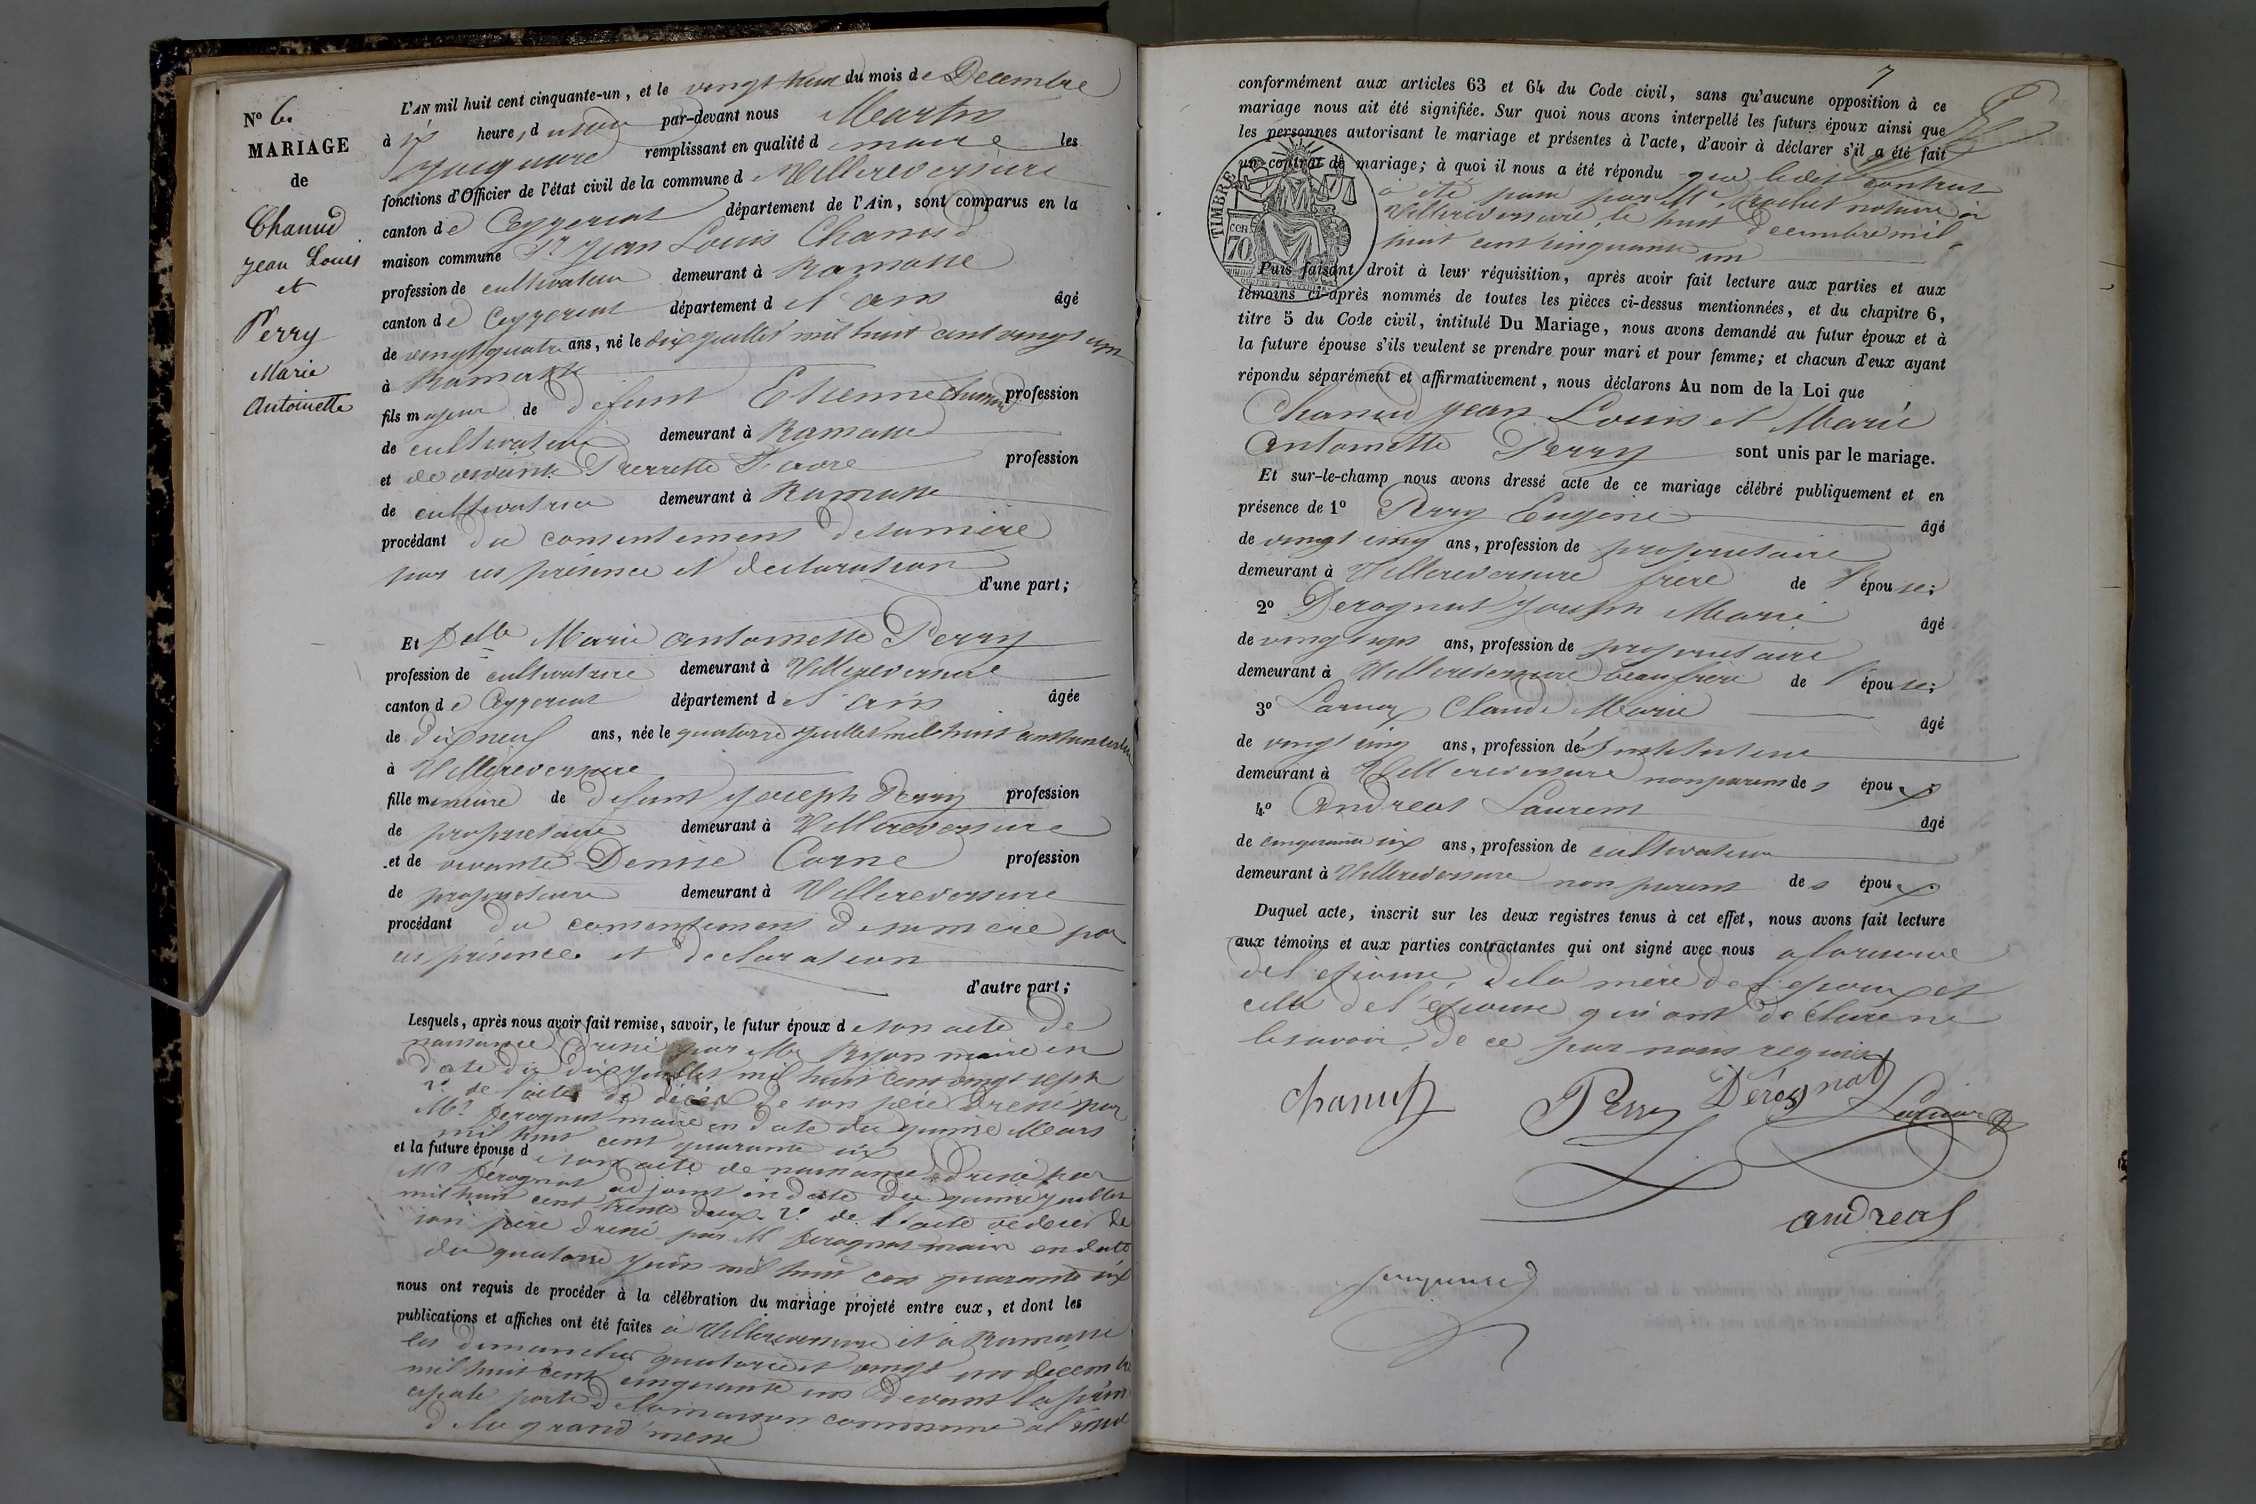 N° 6.
MARIAGE
de
Chanud
Jean Louis
et
Perry
Marie
Antoinette
L'AN mil huit cent cinquante-un, et le vingt huit du mois de Decembre
à six heures, d par-devant nous Martin
remplissant en qualité d maire les
fonctions d'Officier de l'état civil de la commune d Villereversure
canton de Ceyzeriat département de l'Ain, sont comparus en la
maison commune Sr Jean Louis Chanud
profession de cultivateur demeurant à Ramasse
canton de Ceyzeriat département de l'ain âgé
de vingt quatre ans, né le dix juillet mil huit cent vingt sept
à Ramasse
fils majeur de défunt Etienne Chanud profession
de cultivateur demeurant à Ramasse
et de vivante Pierrette Favre profession
de cultivatrice demeurant à Ramasse
procédant du consentement de sa mère
par ses présence et declaration
d'une part;
Et Delle Marie antoinette Perry
profession de cultivatrice demeurant à Villereversure
canton de Ceyzeriat département de l'ain âgée
de dix neuf ans, née le quatorze juillet mil huit cent trente deux
à Villereversure
fille mineure de défunt Joseph Perry profession
de propriétaire demeurant à Villereversure
et de vivante Denise Corne profession
de propriétaire demeurant à Villereversure
procédant du consentement de sa mère par
ses présence et declaration
d'autre part;
Lesquels, après nous avoir fait remise, savoir, le futur époux de son acte de
naissance dressé par Mr maire en
date du dix juillet mil huit cent vingt sept
2° de l'acte de décès de son père dressé par
Mr Derognat maire en date du quinze Mars
mil huit cent quarante six
et la future épouse de son acte de naissance dressé par
Mr Derognat adjoint en date du quinze juillet
mil huit cent trente deux. 2° de l'acte de décès de
son père dressé par M Derognat maire en date
du quatorze juin mil huit cent quarante six
nous ont requis de procéder à la célébration du mariage projeté entre eux, et dont les
publications et affiches ont été faites à Villereversure et à Ramasse
les dimanches quatorze et vingt un decembre
mil huit cent cinquante un devant la prin
cipale porte de la maison commune à l'issue
de la grand'messe
7
conformément aux articles 63 et 64 du Code civil, sans qu'aucune opposition à ce
mariage nous ait été signifiée. Sur quoi nous avons interpellé les futurs époux ainsi que
les personnes autorisant le mariage et présentes à l'acte, d'avoir à déclarer s'il a été fait
un contrat de mariage; à quoi il nous a été répondu que ledit contrat
a été passé par Me notaire à
Villereversure, le huit Decembre mil
huit cent cinquante un
TIMBRE
70 CEN
Puis faisant droit à leur réquisition, après avoir fait lecture aux parties et aux
témoins ci-après nommés de toutes les pièces ci-dessus mentionnées, et du chapitre 6,
titre 5 du Code civil, intitulé Du Mariage, nous avons demandé au futur époux et à
la future épouse s'ils veulent se prendre pour mari et pour femme; et chacun d'eux ayant
répondu séparément et affirmativement, nous déclarons Au nom de la Loi que
Chanud Jean Louis et Marie
Antoinette Perry sont unis par le mariage.
Et sur-le-champ nous avons dressé acte de ce mariage célébré publiquement et en
présence de 1° Perry Eugène âgé
de vingt cinq ans, profession de propriétaire
demeurant à Villereversure frère de l'épouse;
2° Derognat Joseph Marie âgé
de vingt sept ans, profession de propriétaire
demeurant à Villereversure beau frère de l'épouse;
3° Claude Marie âgé
de vingt cinq ans, profession d'instituteur
demeurant à Villereversure non parent des époux
4° Andreas Laurent âgé
de cinquante six ans, profession de cultivateur
demeurant à Villereversure non parent des époux
Duquel acte, inscrit sur les deux registres tenus à cet effet, nous avons fait lecture
aux témoins et aux parties contractantes qui ont signé avec nous a la réserve
de l'épouse, de la mère de l'époux et
celle de l'épouse qui ont déclaré ne
le savoir, de ce par nous requis
chanud
Perry
Dérognat
andreas